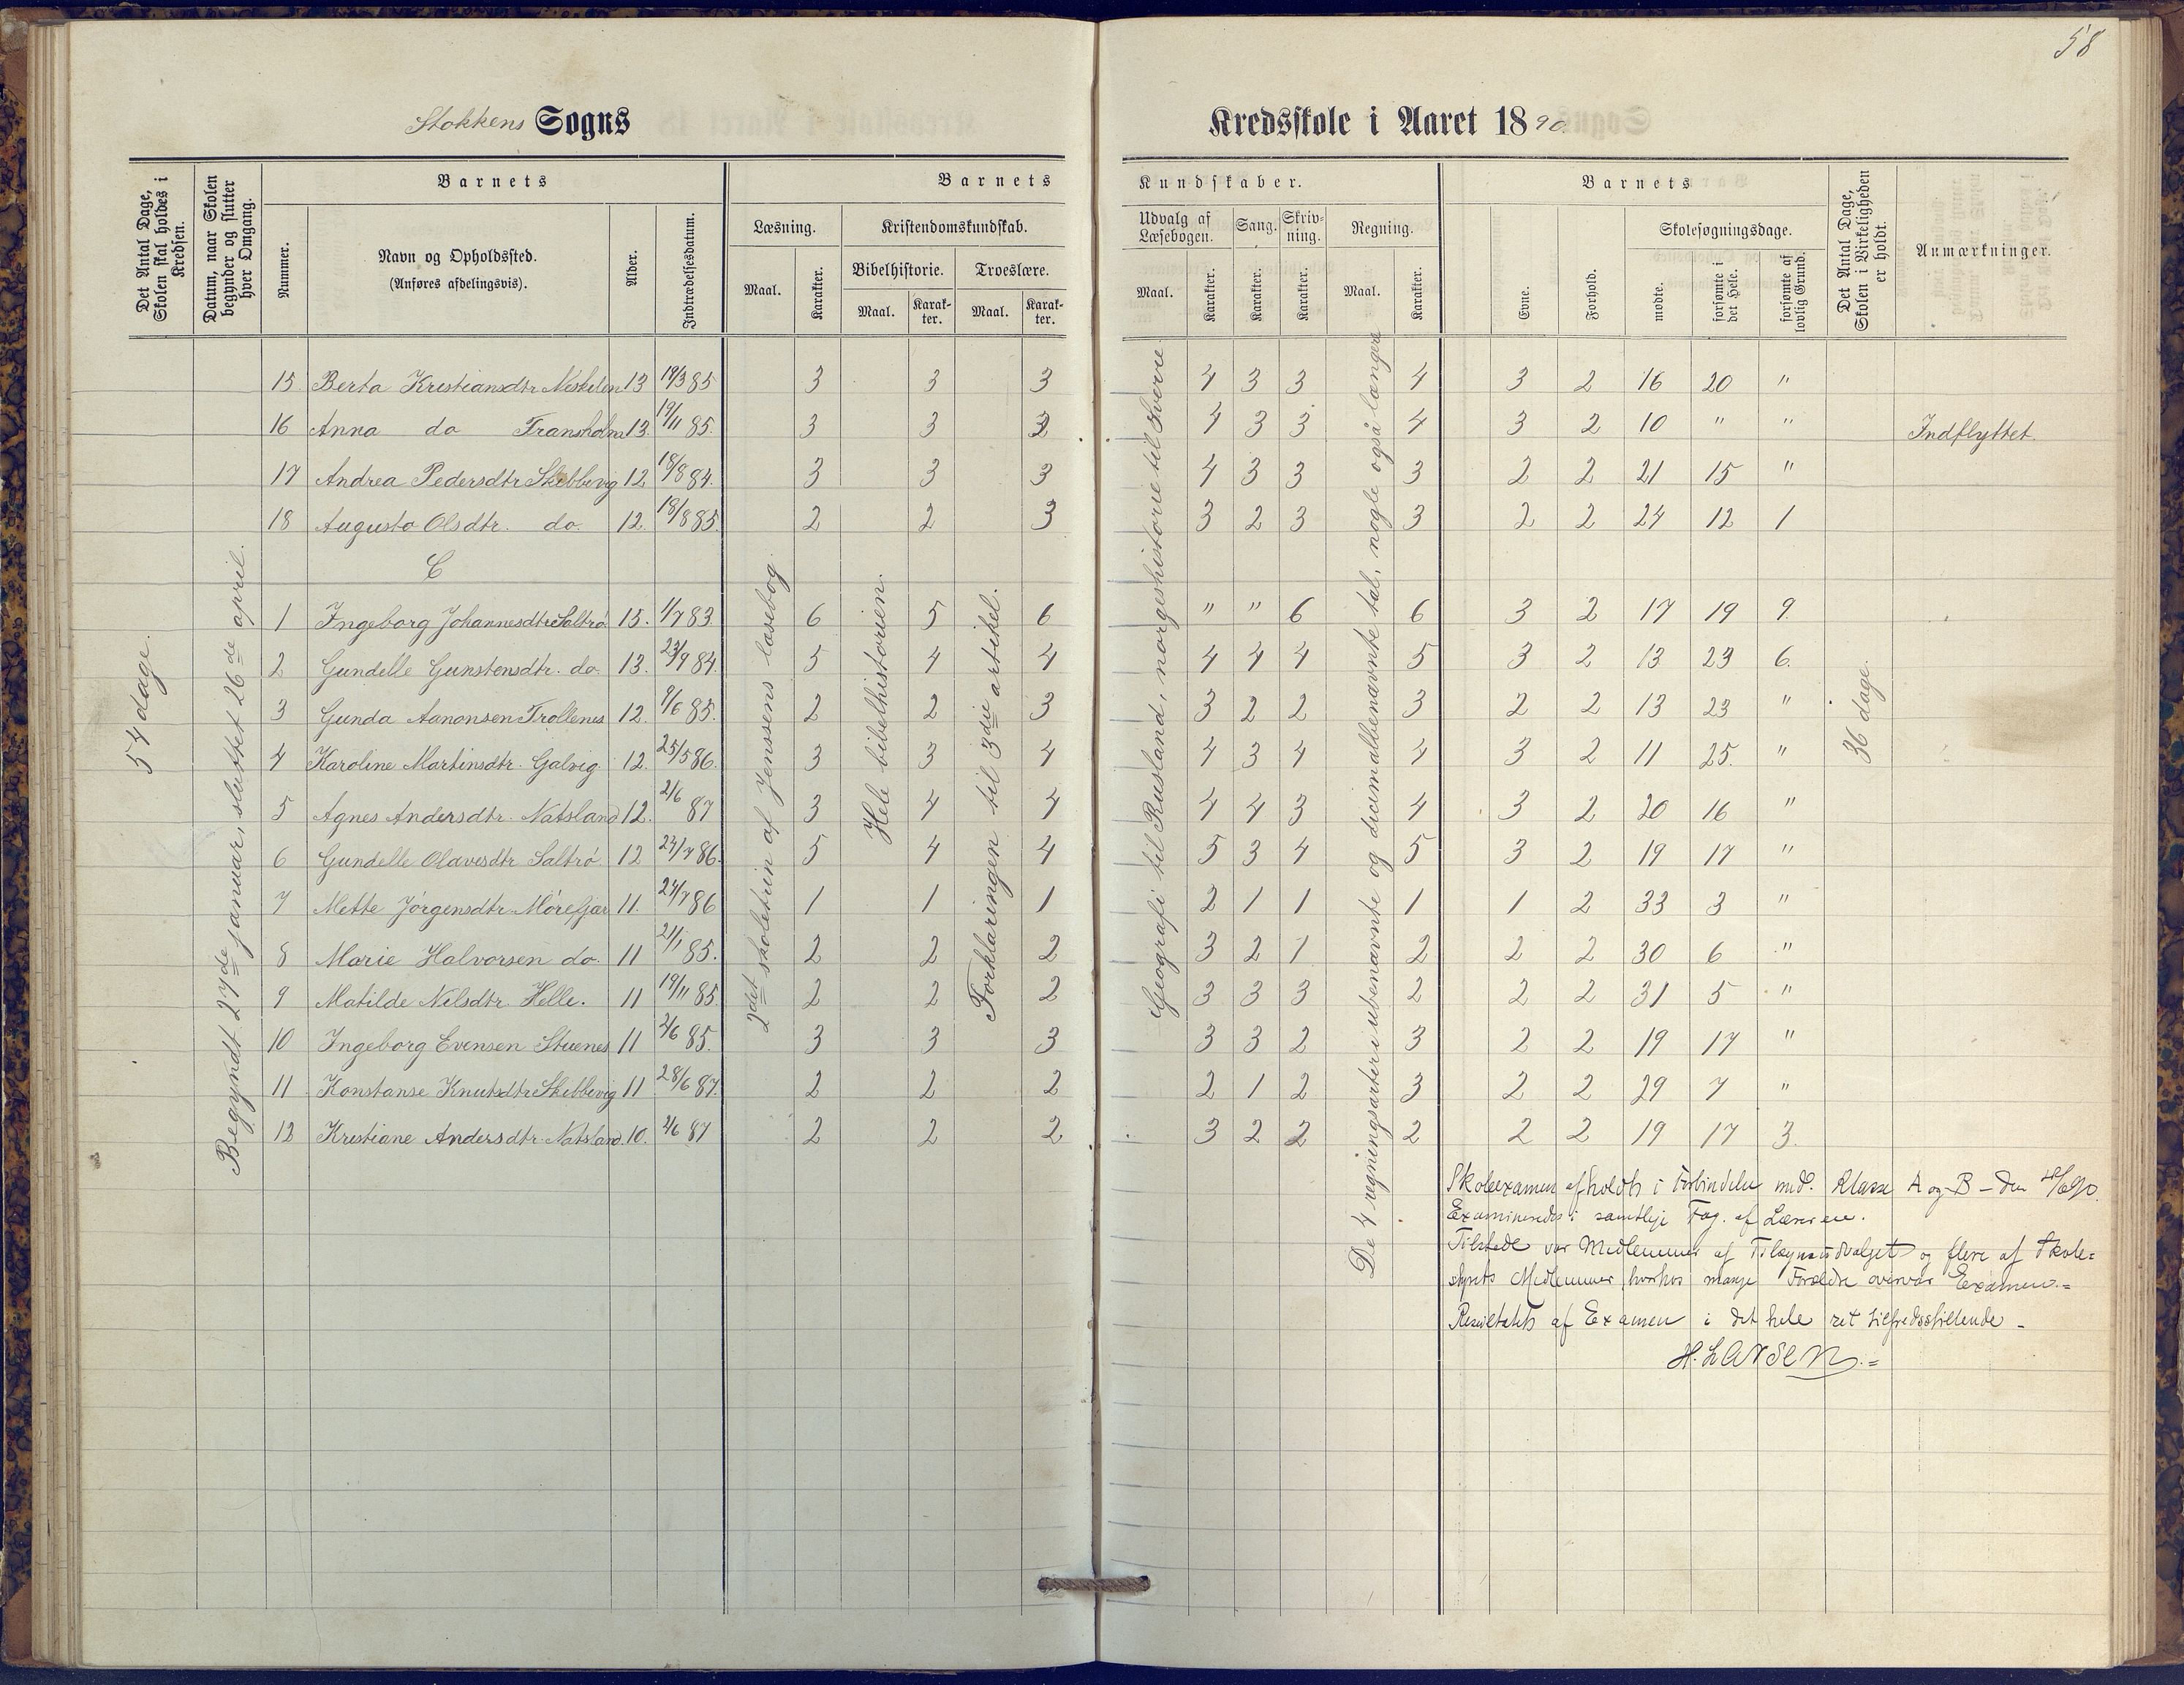 58
Stokkens Sogns
Kredsskole i Aaret 1890.
Det Antal Dage, Skolen skal holdes i Kredsen.
Datum, naar Skolen begynder og slutter hver Omgang.
Barnets
Nummer.
Navn og Opholdssted.
(Anføres afdelingsvis).
Alder.
Indtrædelsesdatum.
Barnets
Kundskaber.
Læsning.
Maal.
Karakter.
Kristendomskundskab.
Bibelhistorie.
Maal.
Karakter.
Troeslære.
Maal.
Karakter.
Udvalg af Læsebogen.
Maal.
Karakter.
Sang.
Karakter.
Skrivning.
Karakter.
Regning.
Maal.
Karakter.
Barnets
Evne.
Forhold.
Skolesøgningsdage.
mødte.
forsømte i det Hele.
forsømte af lovlig Grund.
Det Antal Dage, Skolen i Virkeligheden er holdt.
Anmærkninger.
54 dage.
Begyndt 27de januar, sluttet 26de april.
2det skoletrin af Jenssens læsebog.
Hele bibelhistorien.
Forklaringen til 3die artikel.
Geografi til Rusland, norgeshistorie til Sverre.
De 4 regningsarter i ubenævnte og decimalbenævnte tal, nogle også længere
36 dage.
15 Berta Kristiansdtr Neskilen 13 19/3 85 3 3 3 4 3 3 4 3 2 16 20 "
16 Anna do Fransholm 13. 19/11 85. 3 3 3 4 3 3 4 3 2 10 " " Indflyttet.
17 Andrea Pedersdtr Skibbevig 12 18/8 84. 3 3 3 4 3 3 3 2 2 21 15 "
18 Augusta Olsdtr. do. 12. 18/8 85. 2 2 3 3 2 3 3 2 2 24 12 1
C
1 Ingeborg Johannesdtr Saltrø 15. 1/7 83. 6 5 6 " " 6 6 3 2 17 19 9.
2 Gundelle Gunstensdtr. do. 13. 23/9 84. 5 4 4 4 4 4 5 3 2 13 23 6.
3 Gunda Aanonsen Trollenes 12. 9/6 85. 2 2 3 3 2 2 3 2 2 13 23 "
4 Karoline Martinsdtr. Galvig 12. 25/5 86. 3 3 4 4 3 4 4 3 2 11 25. "
5 Agnes Andersdtr. Natsland 12. 2/6 87 3 4 4 4 4 3 4 3 2 20 16 "
6 Gundelle Olavesdtr Saltrø 12 24/7 86. 5 4 4 5 3 4 5 3 2 19 17 "
7 Mette Jørgensdtr. Mørefjær 11. 24/7 86 1 1 1 2 1 1 1 1 2 33 3 "
8 Marie Halvorsen do. 11 21/1 85. 2 2 2 3 2 1 2 2 2 30 6 "
9 Matilde Nilsdtr. Helle. 11 19/11 85. 2 2 2 3 3 3 2 2 2 31 5 "
10 Ingeborg Evensen Stuenes 11 2/6 85. 3 3 3 3 3 2 3 2 2 19 17 "
11 Konstanse Knutsdtr Skibbevig 11 28/6 87. 2 2 2 2 1 2 3 2 2 29 7 "
12 Kristiane Andersdtr. Natsland. 10. 2/6 87 2 2 2 3 2 2 2 2 2 19 17 3.
Skoleexamen afholdts i Forbindelse med Klasse A og B – den /6 90.
Examineredes i samtlige Fag. af Læreren.
Tilstede var Medlemmer af Tilsynsudvalget og flere af Skole=
styrets Medlemmer, hvorhos mange Forældre overvar Examen.=
Resultatets af Examen i det hele ret tilfredsstillende –
H. Larsen.=